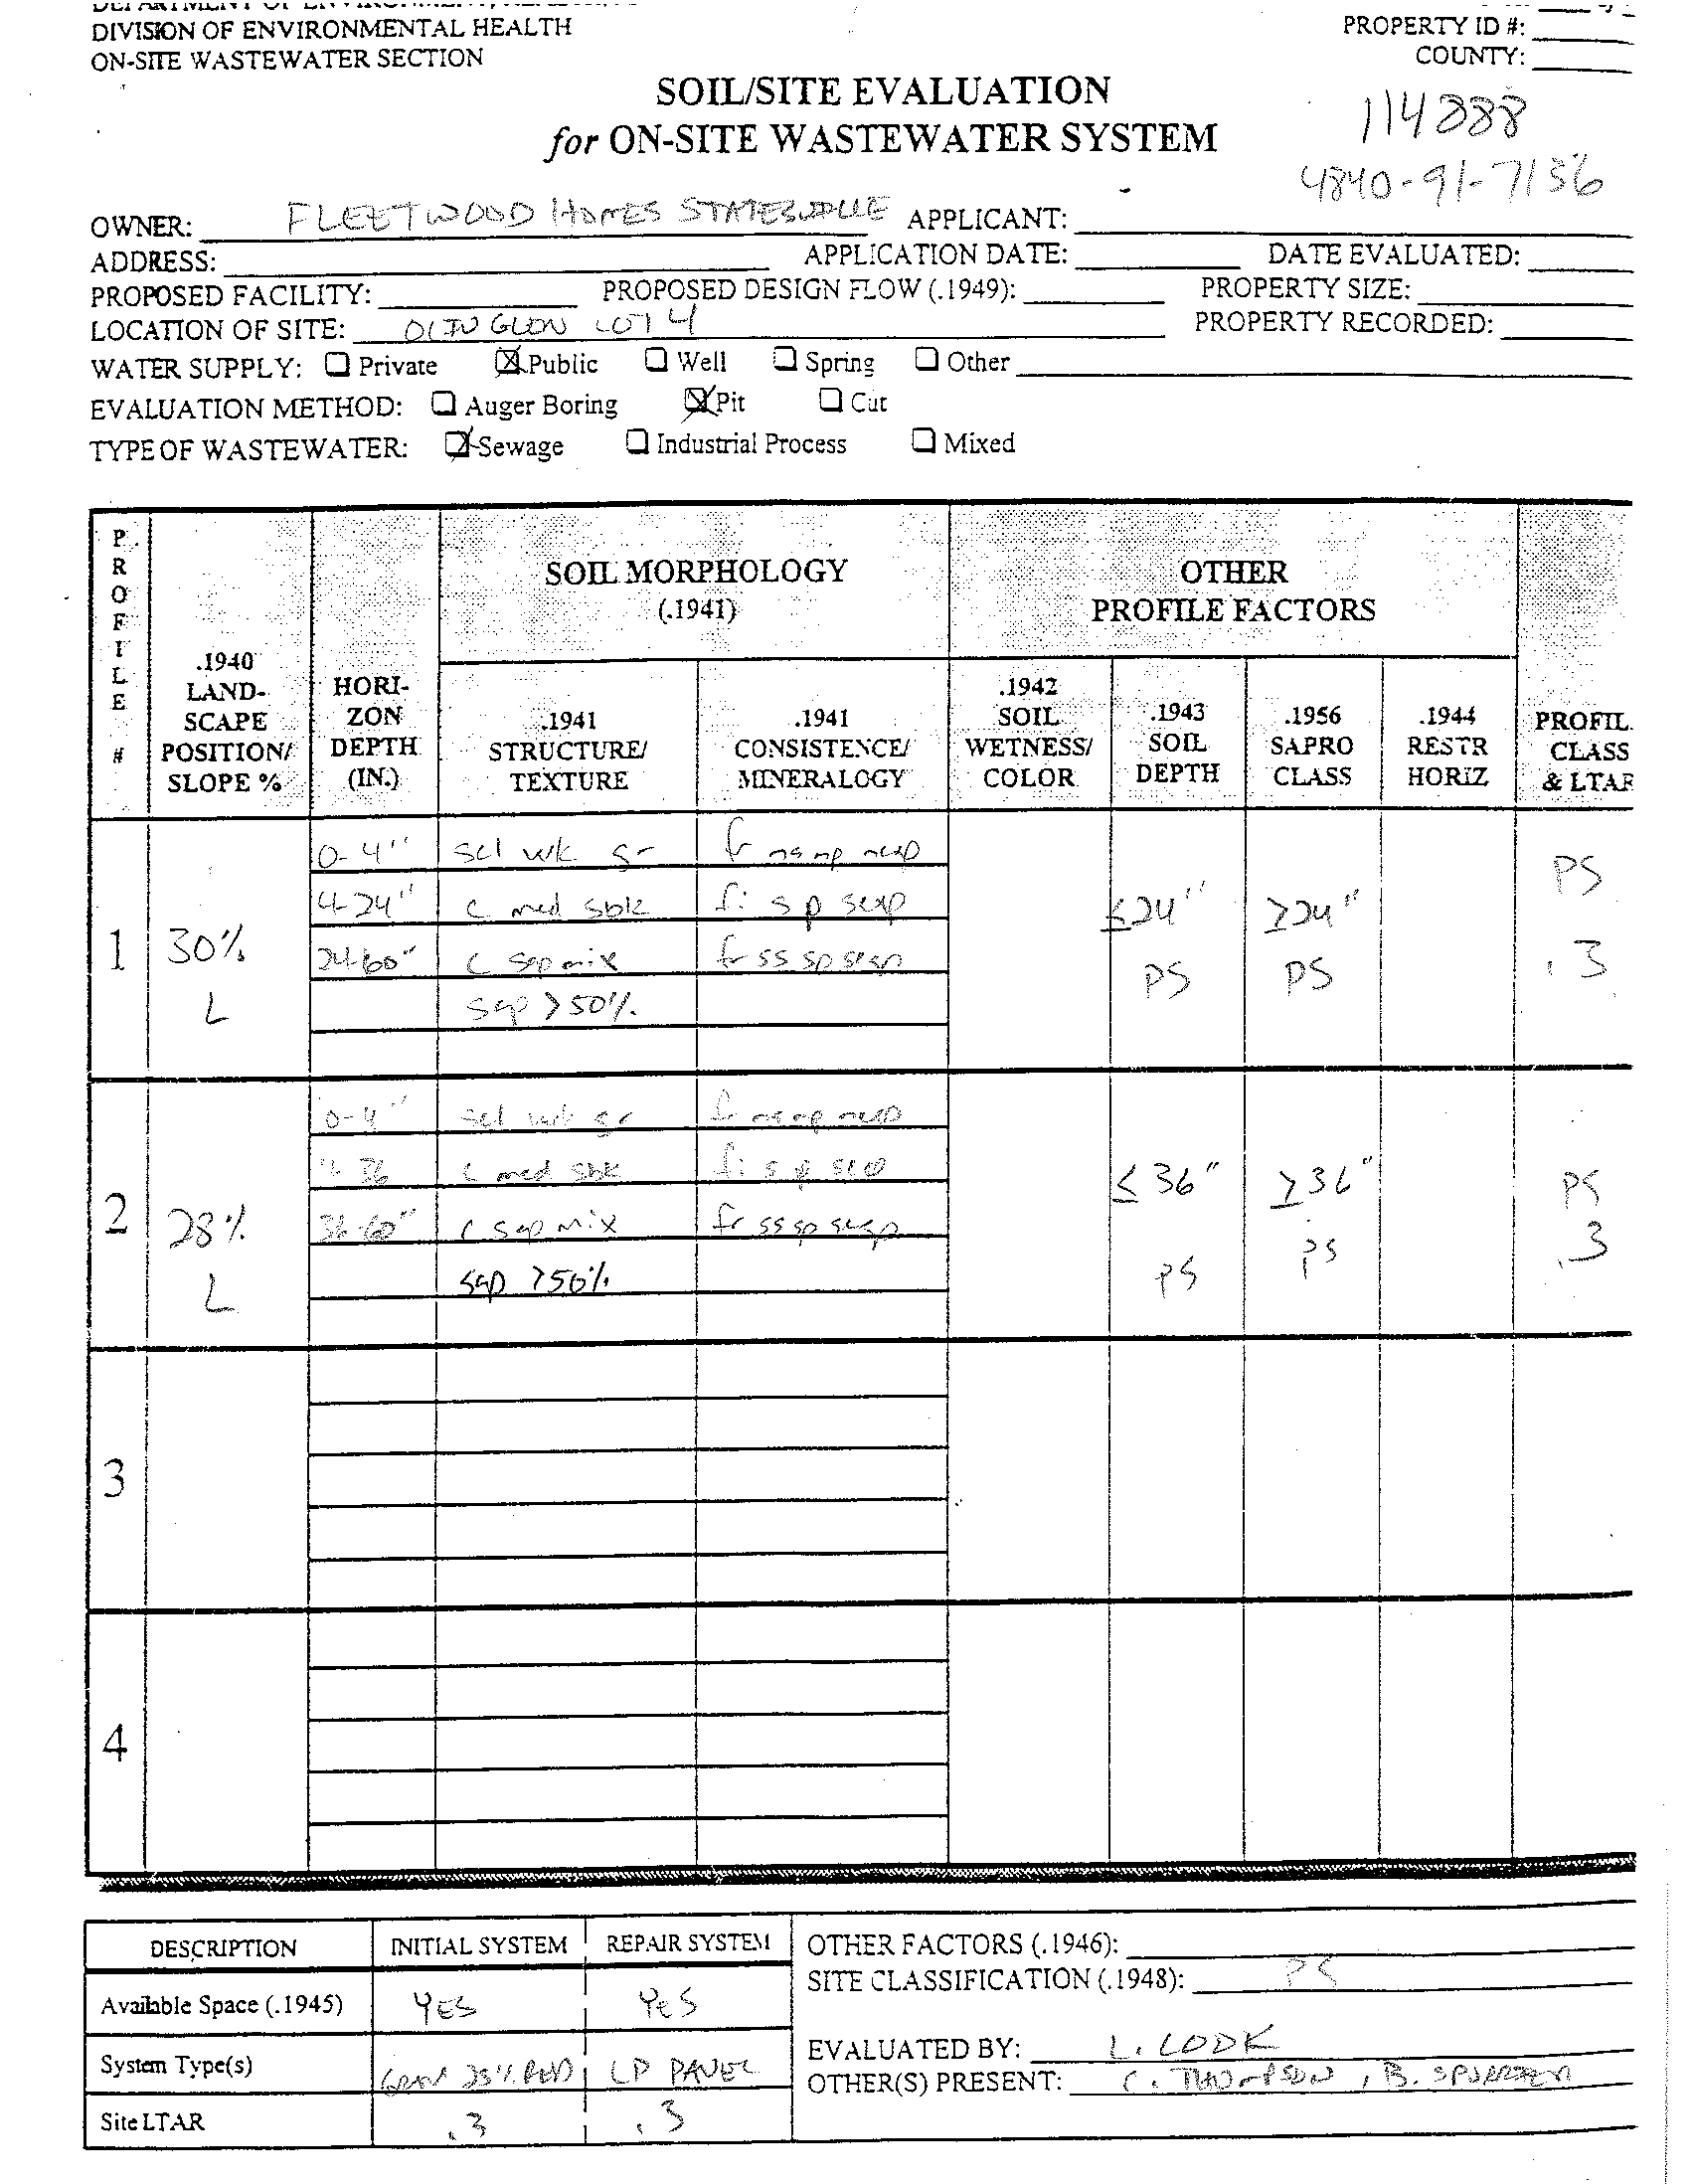 DIVISION OF ENVIRONMENTAL HEALTH
ON-SITE WASTEWATER SECTION
PROPERTY ID #:
COUNTY:
SOIL/SITE EVALUATION
for ON-SITE WASTEWATER SYSTEM
114888
4840-91-7136
OWNER: FLEETWOOD HOMES STATESVILLE APPLICANT:
ADDRESS: APPLICATION DATE: DATE EVALUATED:
PROPOSED FACILITY: PROPOSED DESIGN FLOW (.1949): PROPERTY SIZE:
LOCATION OF SITE: OLIN GLEN LOT 4 PROPERTY RECORDED:
WATER SUPPLY: Private Public Well Spring Other
EVALUATION METHOD: Auger Boring Pit Cut
TYPE OF WASTEWATER: Sewage Industrial Process Mixed
PROFILE #
.1940 LAND-SCAPE POSITION/ SLOPE %
HORI-ZON DEPTH (IN.)
SOIL MORPHOLOGY (.1941)
.1941 STRUCTURE/ TEXTURE
.1941 CONSISTENCE/ MINERALOGY
OTHER PROFILE FACTORS
.1942 SOIL WETNESS/ COLOR
.1943 SOIL DEPTH
.1956 SAPRO CLASS
.1944 RESTR HORIZ
PROFIL CLASS & LTAR
1 30% L
0-4" scl wk gr fr ns np nexp
4-24" c med sbk fi s p sexp
24-60" c sap mix fr ss sp sexp
sap >50%
≤24" PS
≥24" PS
PS .3
2 28% L
0-4" scl wk gr fr ns np nexp
4-36 c med sbk fi s p sexp
36-60" c sap mix fr ss sp sexp
sap >50%
≤36" PS
≥36" PS
PS .3
3
4
DESCRIPTION INITIAL SYSTEM REPAIR SYSTEM
Available Space (.1945) YES YES
System Type(s) GRAV 25% RED LP PANEL
Site LTAR .3 .3
OTHER FACTORS (.1946):
SITE CLASSIFICATION (.1948): PS
EVALUATED BY: L. COOK
OTHER(S) PRESENT: C. THOMPSON, B.